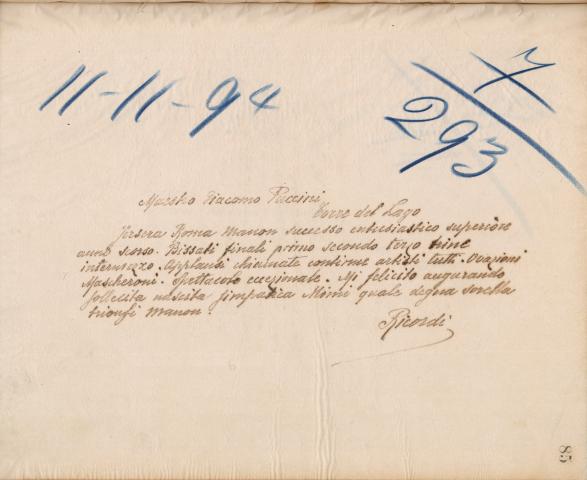 11-11-94
7
293
Maestro Giacomo Puccini
Torre del Lago
Jersera Roma Manon successo entusiastico superiore
anno scorso. Bissati finali primo secondo terzo
intermezzo. Applausi chiamate continue artisti tutti. Ovazioni
Mascheroni. Spettacolo eccezionale. Mi felicito augurando
sollecita nascita simpatica Mimi quale degna sorella
trionfi Manon.
Ricordi
58